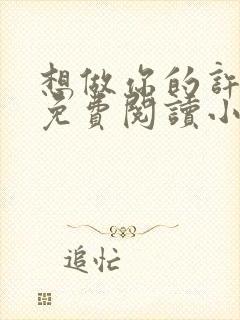 想做你的許
免費閱讀小
追忙